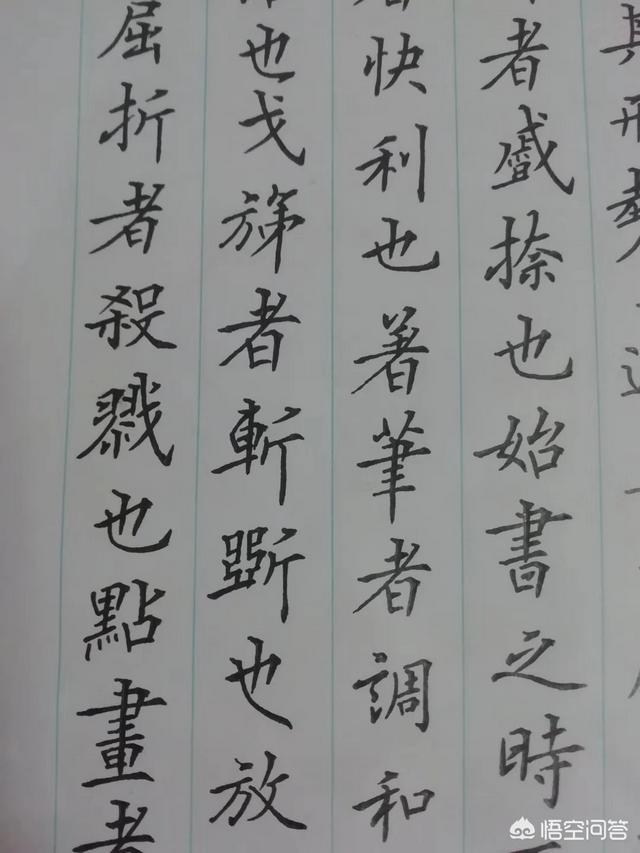 其形勢
者蹙捺也始書之時
快利也著筆者調和
也戈者斬斲也放
屈折者殺戮也點畫者
悟空问答